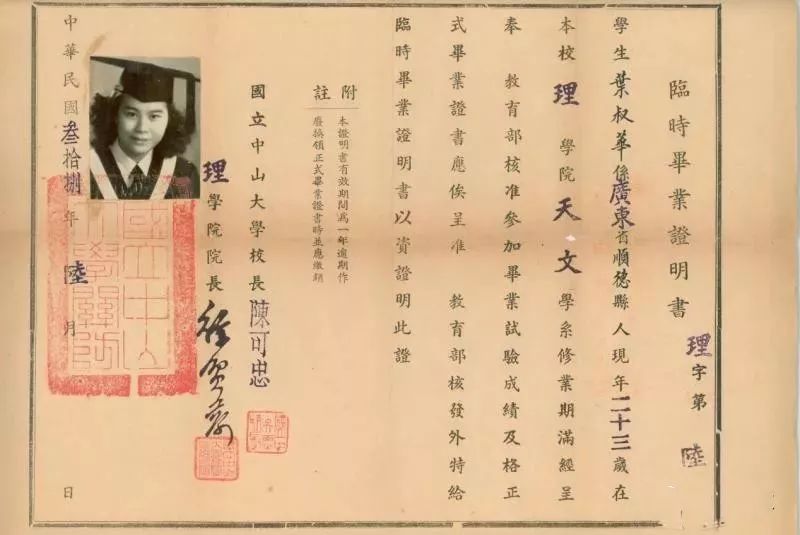 臨時畢業證明書
理字第 陸
學生葉叔華係廣東省順德縣人現年二十三歲在
本校理學院天文學系修業期滿經呈
奉 教育部核准參加畢業試驗成績及格正
式畢業證書應俟呈准 教育部核發外特給
臨時畢業證明書以資證明此證
附註
本證明書有效期間爲一年逾期作
廢換領正式畢業證書時並應繳銷
國立中山大學校長陳可忠
理學院院長
中華民國叁拾捌年陸月 日